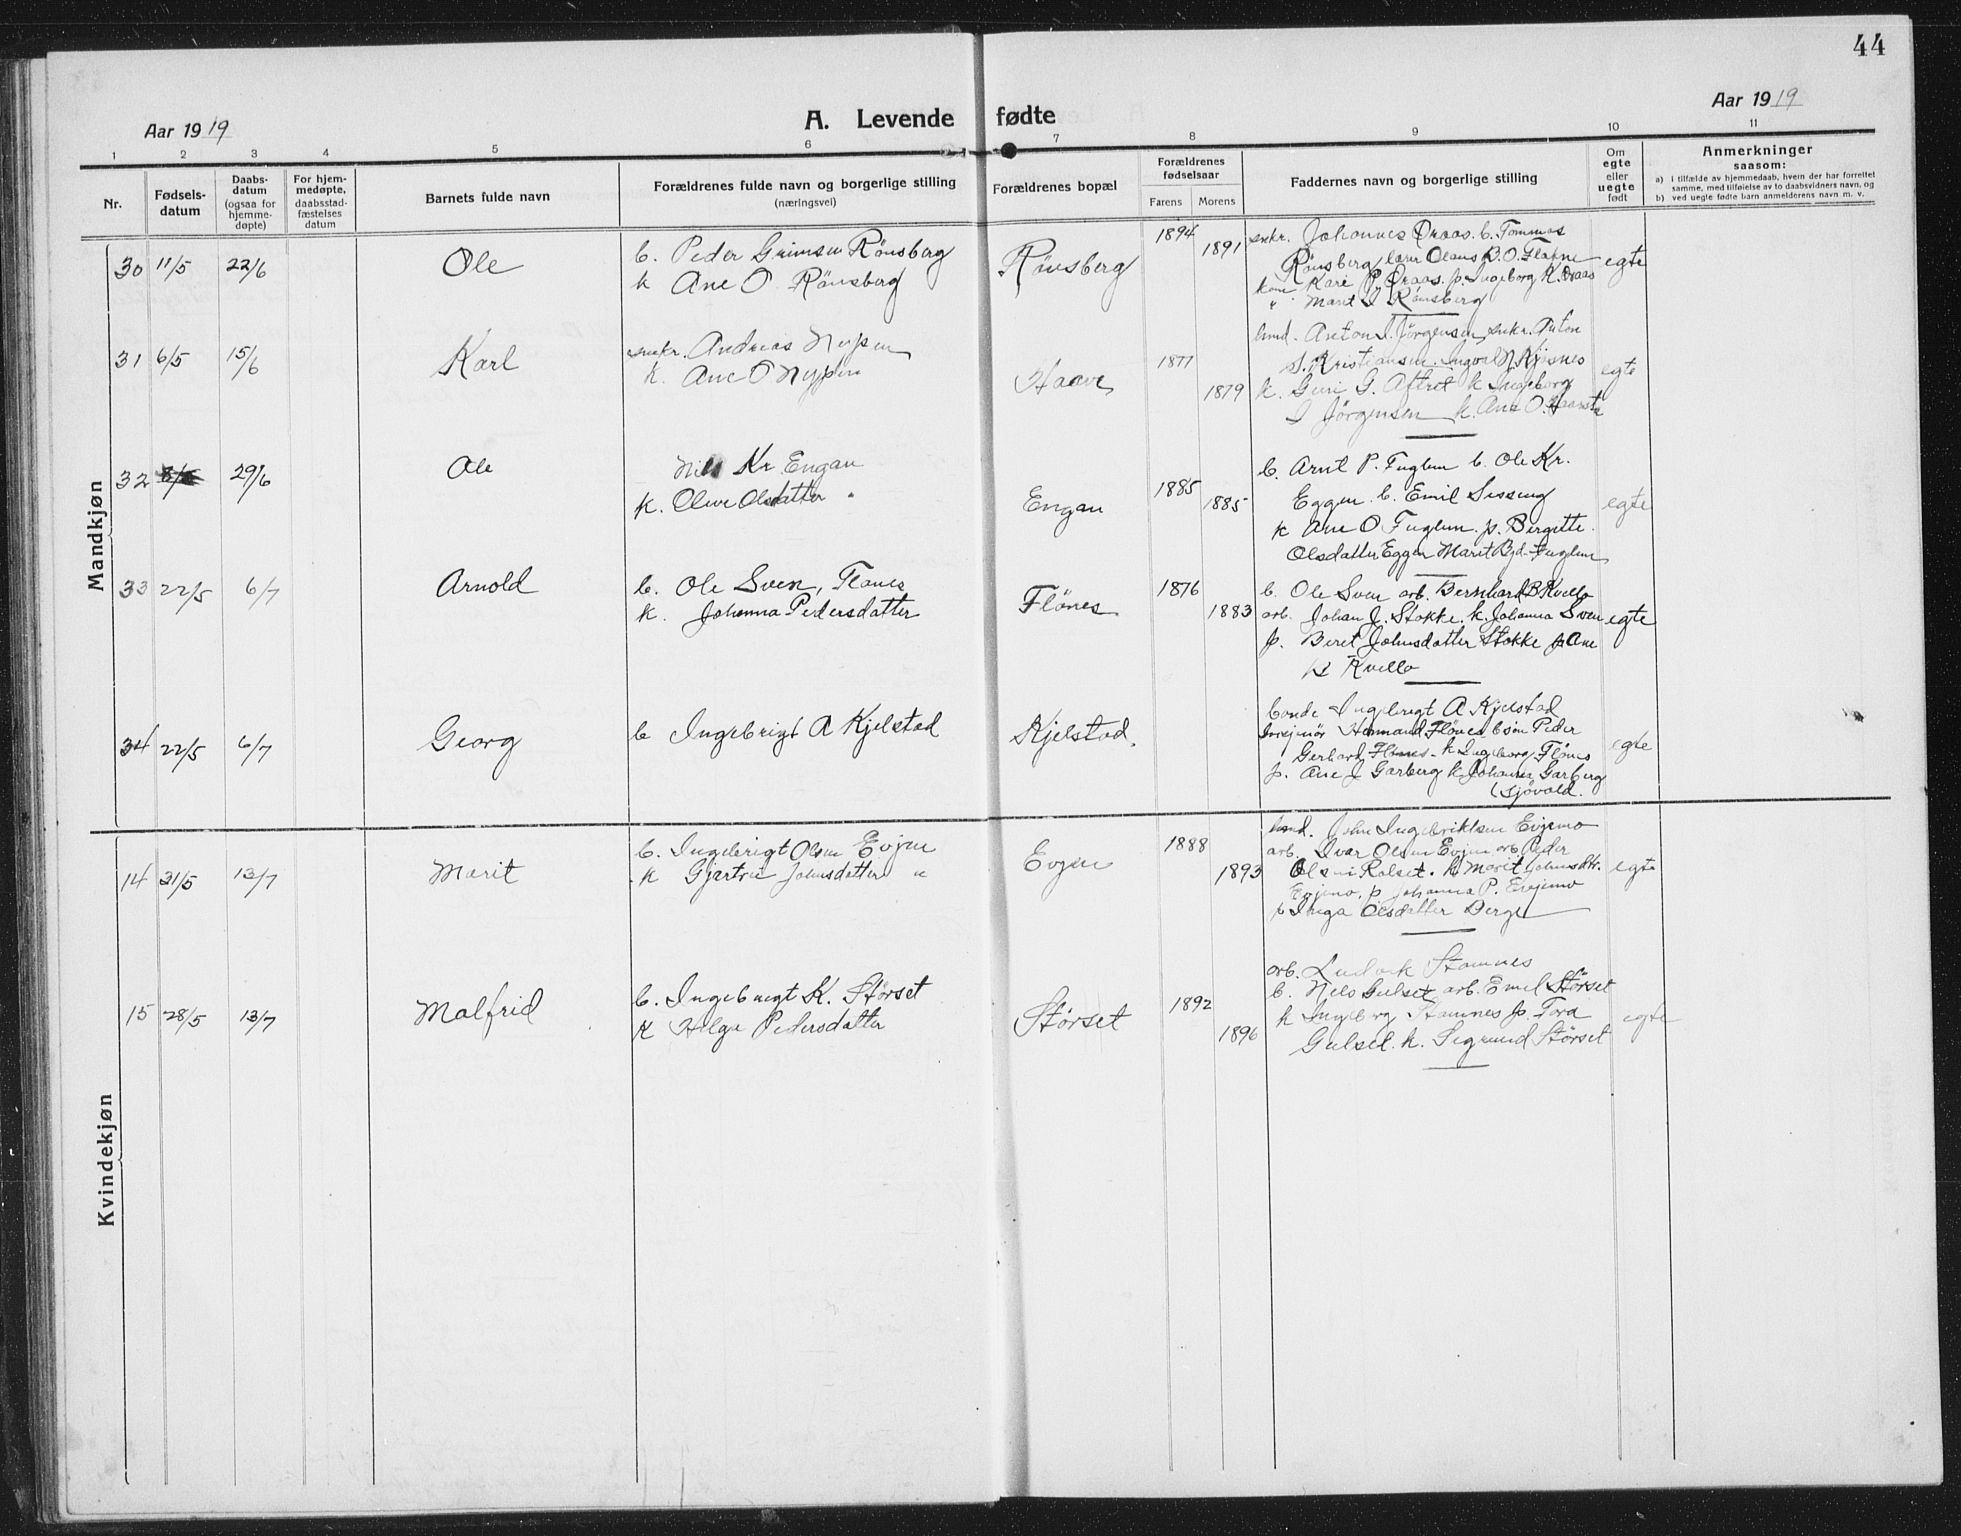 44
Aar 1919
A. Levende fødte
Aar 1919
1 2 3 4 5 6 7 8 9 10 11
Nr.
Fødsels-
datum
Daabs-
datum
(ogsaa for
hjemme-
døpte)
For hjem-
medøpte,
daabsstad-
fæstelses
datum
Barnets fulde navn
Forældrenes fulde navn og borgerlige stilling
(næringsvei)
Forældrenes bopæl
Forældrenes
fødselsaar
Farens Morens
Faddernes navn og borgerlige stilling
Om
egte
eller
uegte
født
Anmerkninger
saasom:
a) i tilfælde av hjemmedaab, hvem der har forrettet
samme, med tilføielse av to daabsvidners navn, og
b) ved uegte fødte barn anmelderens navn m. v.
Mandkjøn
30 11/5 22/6 Ole
b. Peder Grimsen Rönsberg
k Ane O. Rönsberg
Rönsberg 1894 1891
snkr. Johannes Draas. b. Tommas
Rönsberg lærer Olaus B. O. Flakne
kone Kari P. Draas. p. Ingeborg K. Draas
" Marit I Rönsberg
egte
31 6/5 15/6 Karl
snekr. Andreas Nypan
k. Ane O Nypan
Haave 1877 1879
hmd. Anton I. Jörgensen snkr. Anton
S. Kristiansen. Ingvald Kjösnes
k. Guri G. Aftret k Ingeborg
I Jörgensen k. Ane O.
egte
32 29/6 Ole
Nils Kr Engan
k. Olive Olsdatter "
Engan 1885 1885
b. Arnt P. Fuglem b. Ole Kr.
Eggen. b. Emil
k Ane O Fuglem. p. Bergitte
Olsdatter Eggen Marit Fuglem
egte
33 22/5 6/7 Arnold
b. Ole Sven, Flönes
k. Johanna Pedersdatter
Flönes 1876 1883
b. Ole Sven arb. Bernhard B Kvello
arb. Johan J. Stokke. k. Johanna Sven
p. Beret Johnsdatter Stokke p. Ane
Kvello
egte
34 22/5 6/7 Georg
b Ingebrigt A Kjelstad
Kjelstad.
bonde Ingebrigt A Kjelstad
Flönes bsön Peder
Gerhard Flönes - k Ingeborg Flönes
p. Ane J Garberg k Johanna Garberg
(sjövold.
egte
Kvindekjøn
14 31/5 13/7 Marit
b. Ingebrigt Olsen Evjen
k Gjertru Johnsdatter "
Evjen 1888 1893
hmd. John Ingebriktsen Evjemo
arb. Ivar Olsen Evjen arb Peder
Olsen Rolset. k. Marit Johnsdtr.
Evjemo, p. Johanna P. Evjemo
p Inga Olsdatter Berge
egte
15 28/5 13/7 Malfrid
b. Ingebrigt K. Störset
k Helga Pedersdatter
Störset 1892 1896
arb. Ludvik Stamnes
b. Nels Gulset arb. Emil Störset
k Ingeborg Stamnes p. Tora
Gulset. k. Sigrund Störset
egte